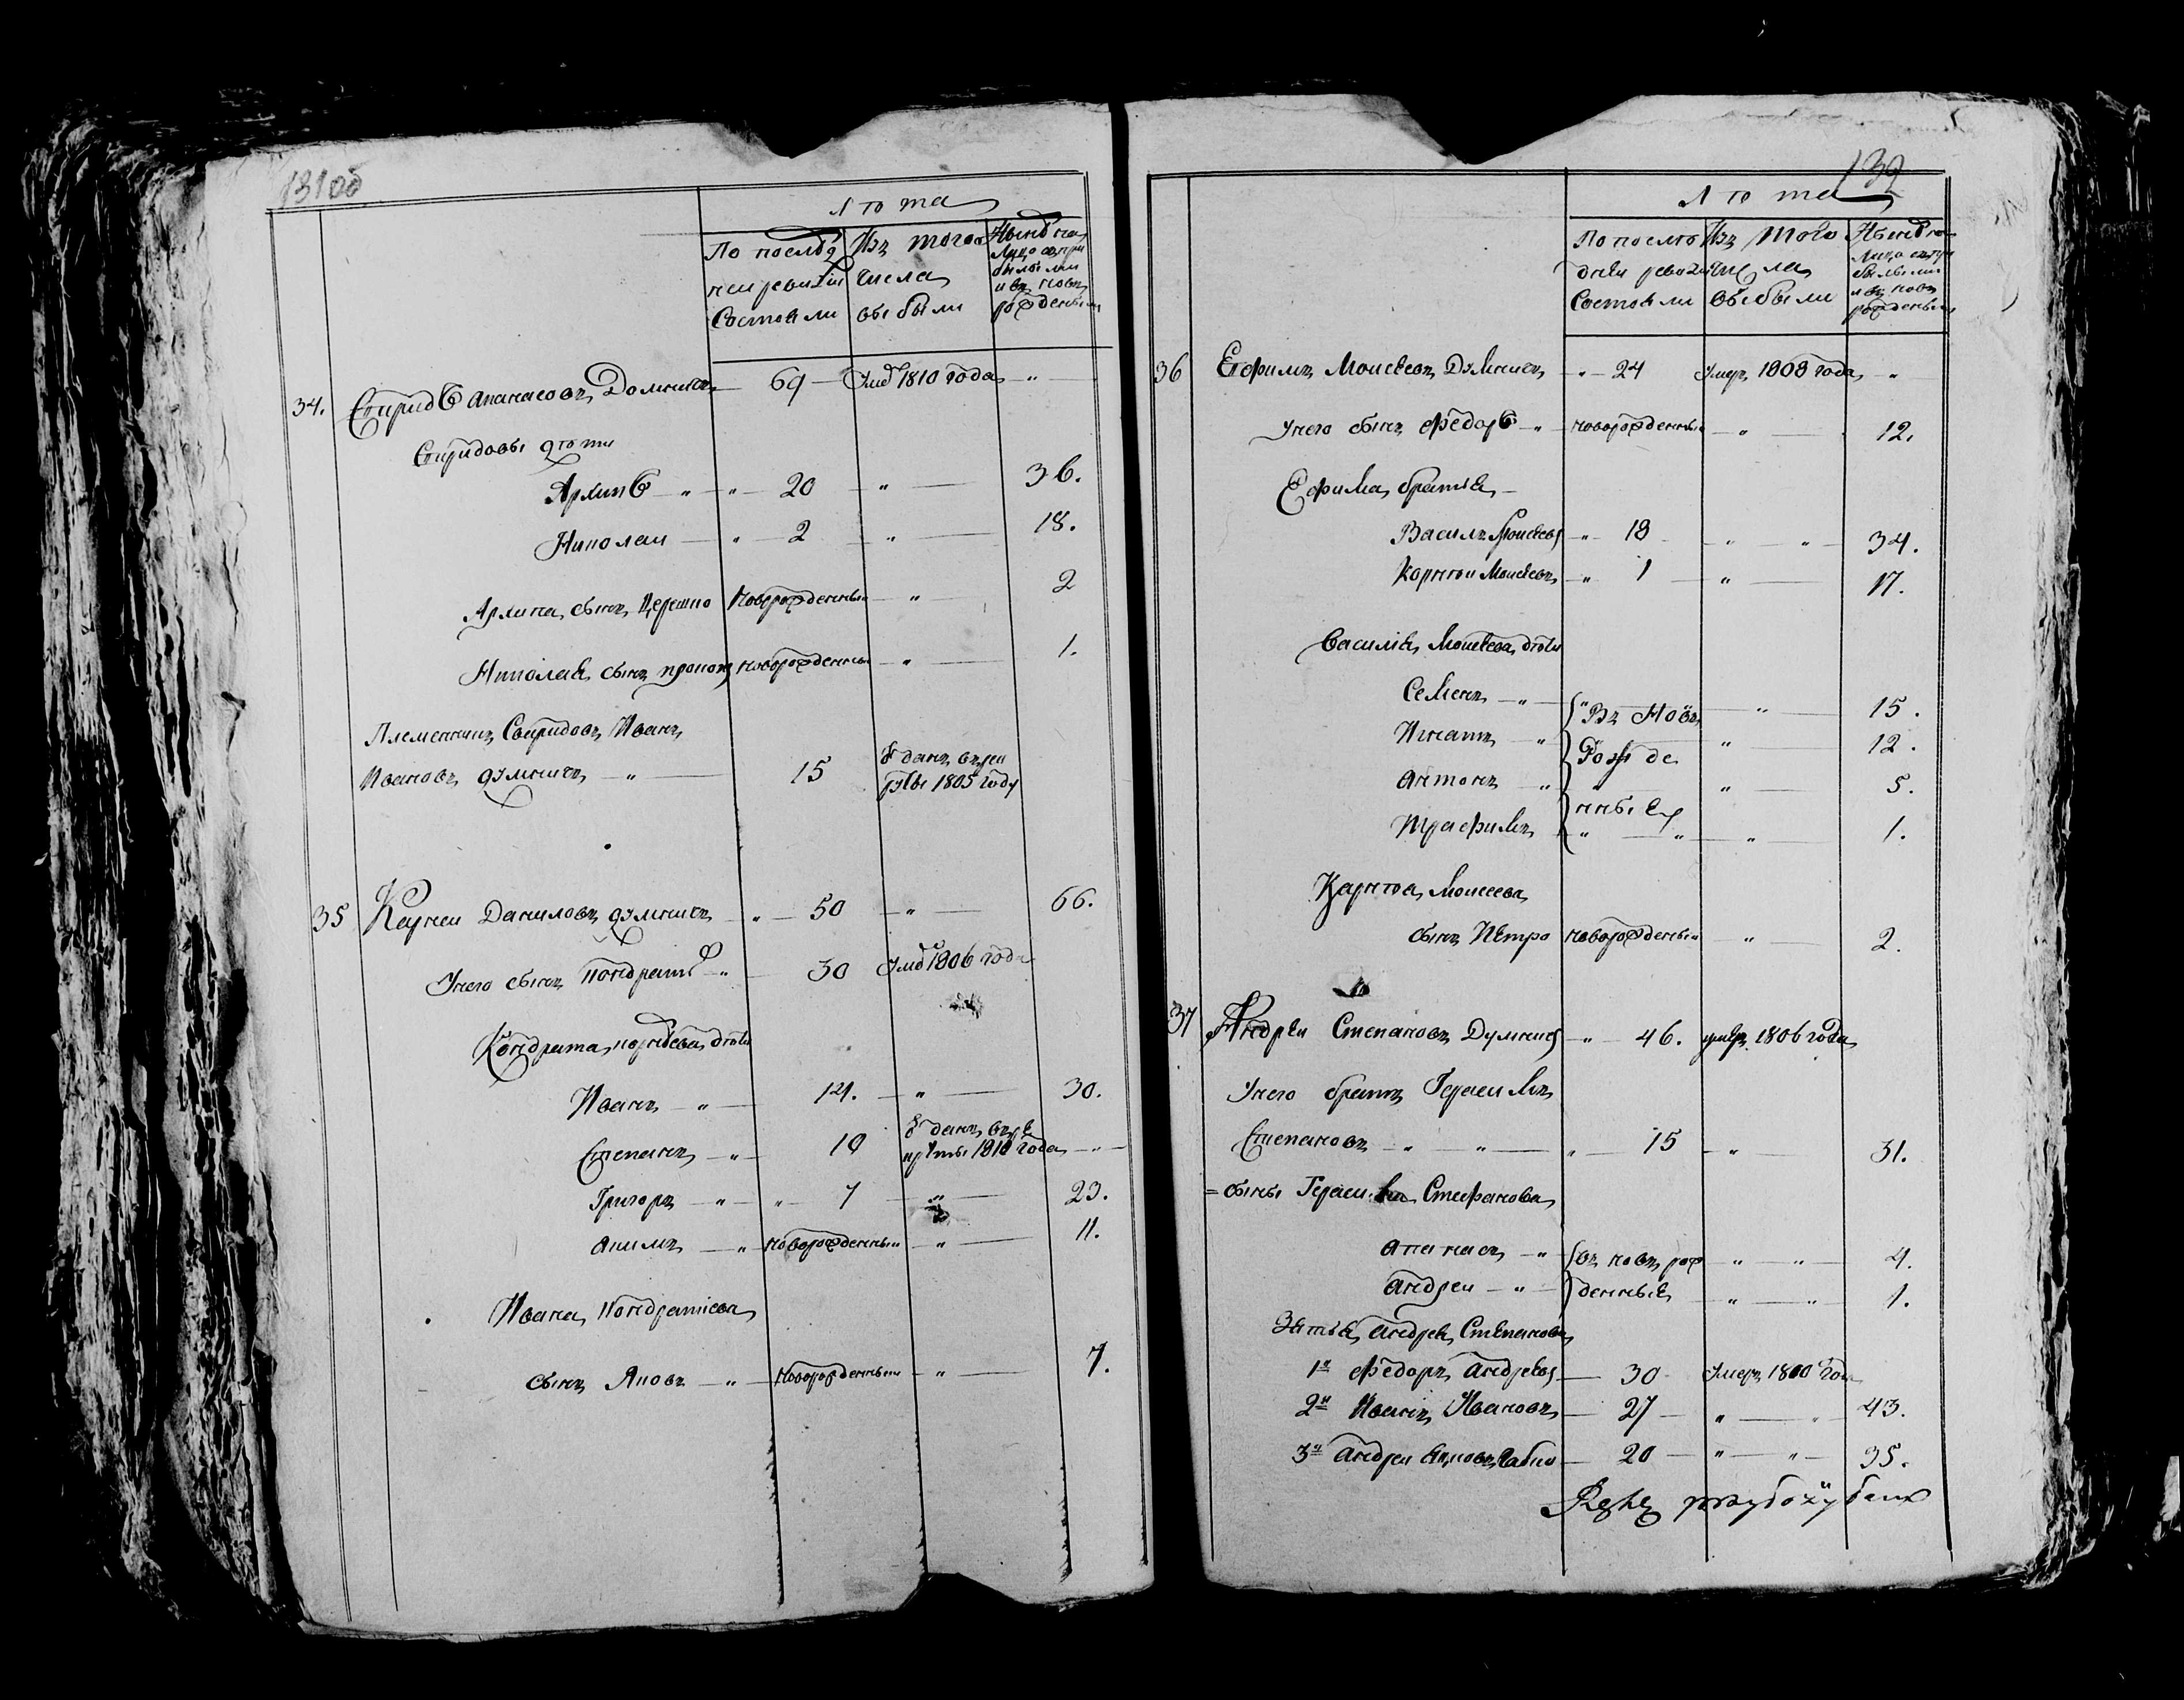 131об
Лѣта
По последней ревизіи состояли
Изъ того числа выбыли
Нынѣ на лицо съ прибылыми и въ новъ рожденными
34. Спиридъ Апанасовъ Домничъ — 69 — Умъ 1810 года „
Спиридовы дѣти
Архипъ „ „ 20 „ 36.
Николаи „ 2 „ 18.
Архипа сынъ Церешко новорожденныи „ 2
Николая сынъ новорожденныи „ 1.
Племенникъ Спиридовъ Иванъ
Ивановъ думничъ „ 15 Зданъ въ рекруты 1805 году
35 Карнеи Даниловъ думничъ „ 50 „ 66.
Унего сынъ Кондратъ „ 30 Умъ 1806 года
Кондрата Корнѣева дѣти
Иванъ „ 14. „ 30.
Степанъ „ 10 Зданъ въ рекруты 1810 года „
Григоръ „ „ 7 „ 23.
Акимъ „ новорожденныи „ 11.
Ивана Кондратіева
сынъ Яковъ „ новорожденныи „ 7.
132
Лѣта
По последней ревизіи состояли
Изъ того числа выбыли
Нынѣ на лицо съ прибылыми и въ новъ рожденными
36 Ефимъ Моисеевъ Думничъ „ 24 Умеръ 1808 года „
Унего сынъ Федоръ „ новорожденныи „ 12.
Ефима братья
Василъ Моисеевъ „ 18 „ „ 34.
Корнѣи Моисеевъ „ 1 „ 17.
Василія Моисеева дѣти
Семенъ „ „ Въ новъ „ 15.
Игнатъ „ рожде „ 12.
Антонъ „ „ 5.
Трафимъ нныѣ „ „ „ 1.
Карнѣя Моисеева
сынъ Пѣтро новорожденныи „ 2.
37 Андрѣи Степановъ Думничъ „ 46. умеръ 1806 года
Унего братъ Герасимъ
Степановъ „ „ „ 15 „ 31.
= сыны Герасима Стефанова
Апанасъ „ въ новъ рож „ „ 4.
Андреи „ денныѣ „ „ 1.
Зятья Андрея Стѣпанова
1й Федоръ Андреевъ 30 Умеръ 1800 года
2й Иванъ Ивановъ 27 „ „ 43.
3й Андреи 20 „ „ 35.